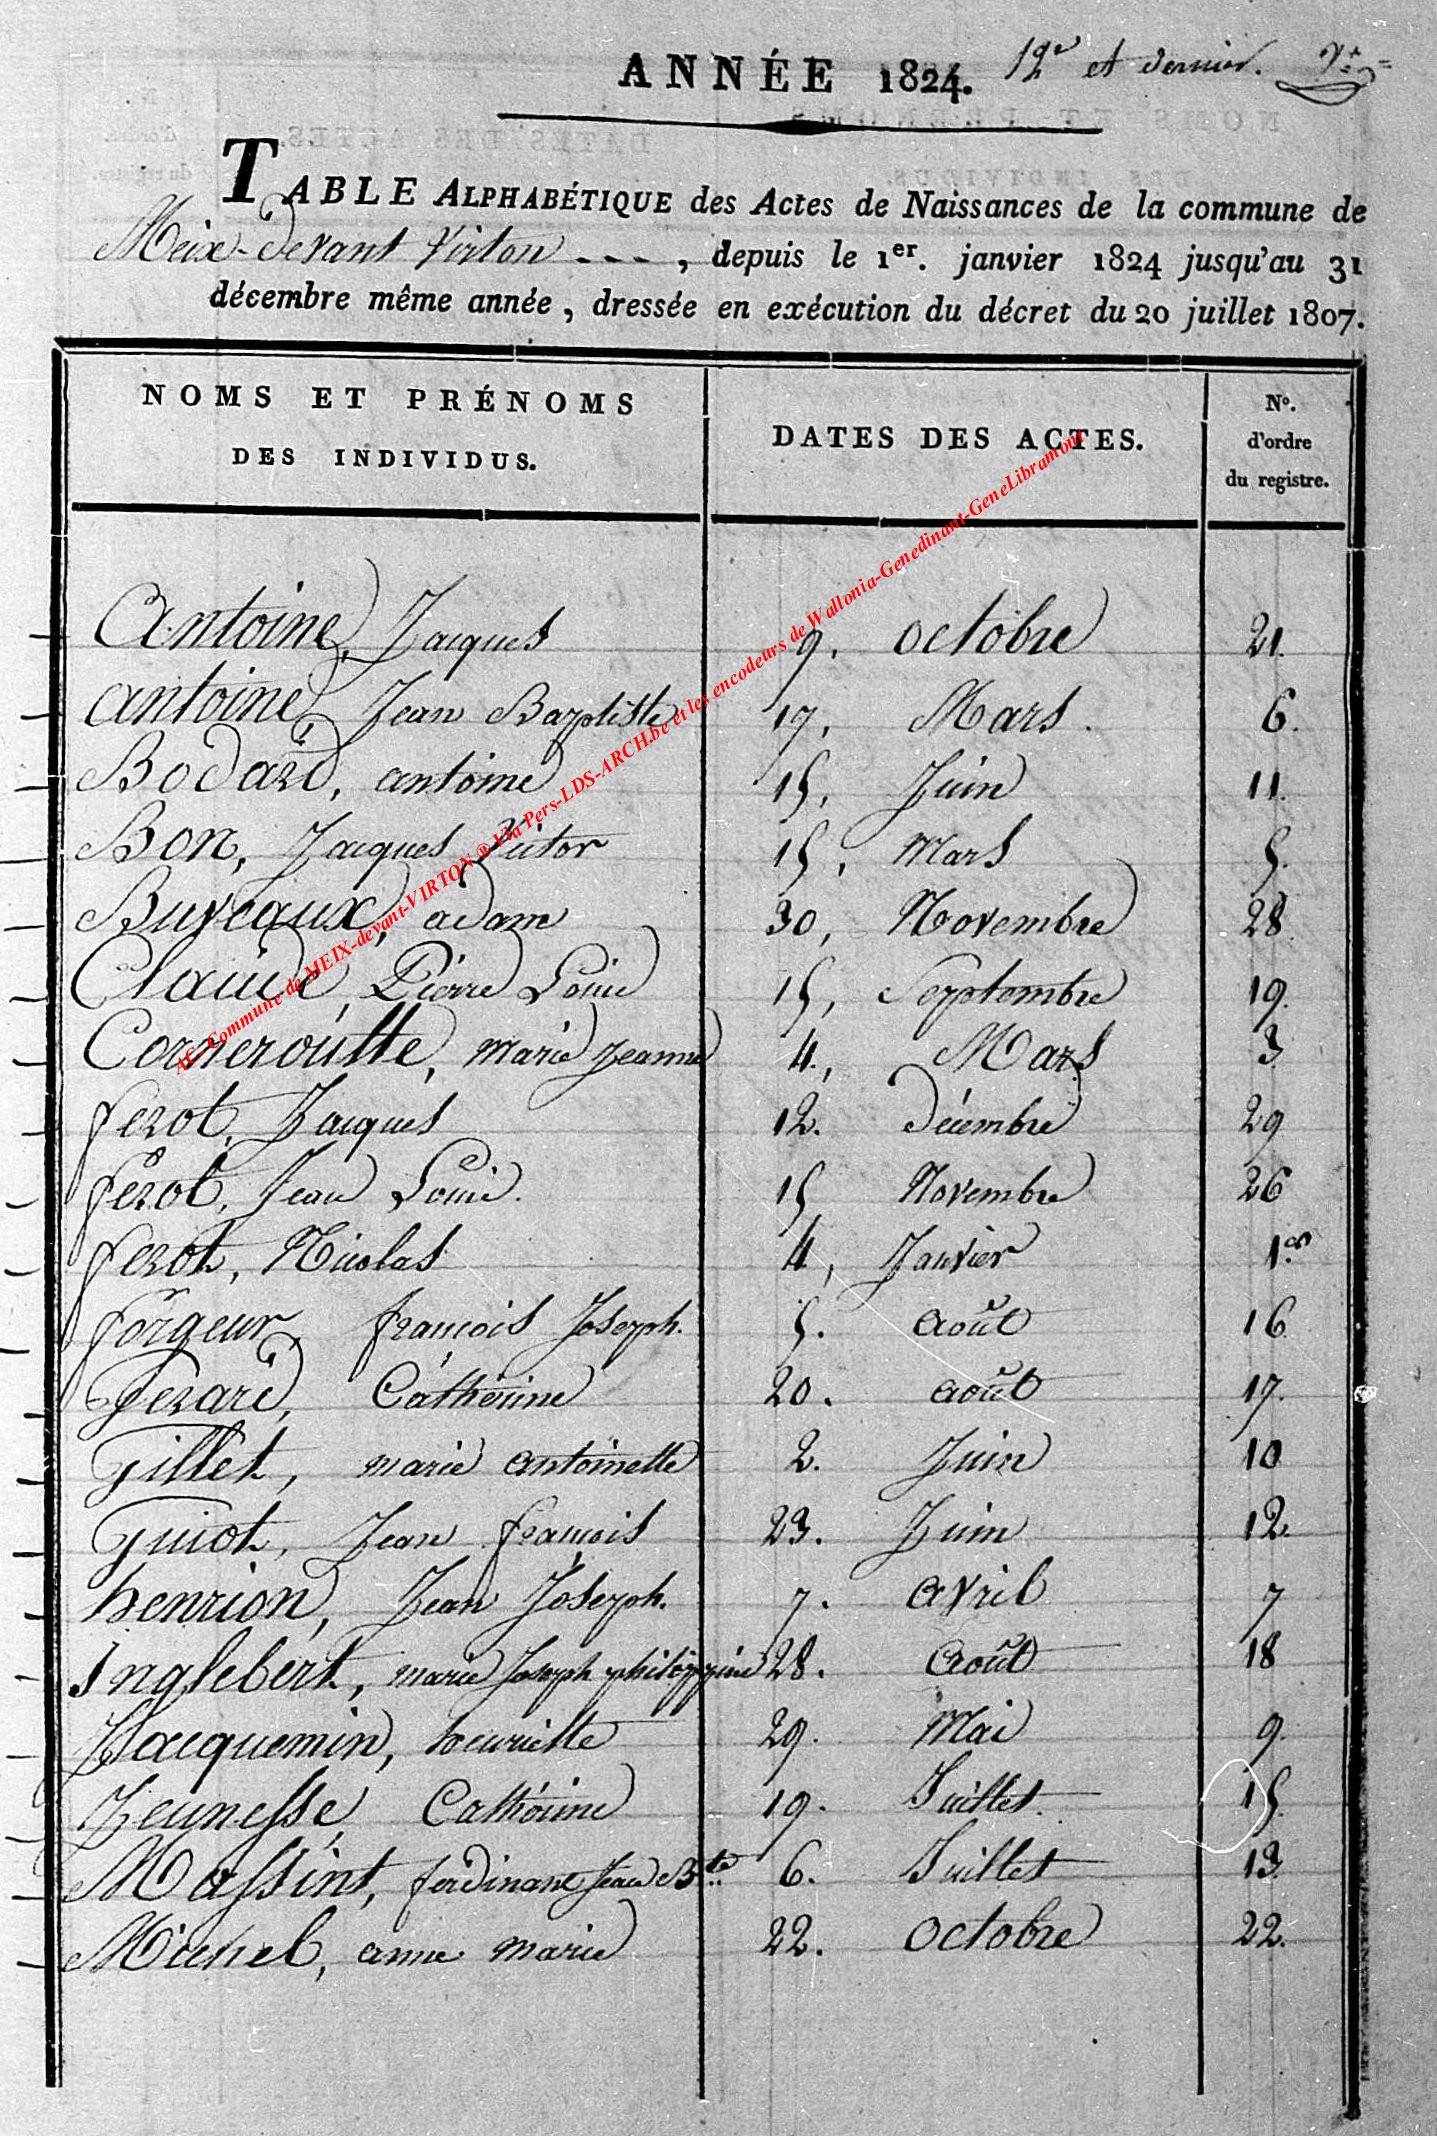 ANNÉE 1824. 12e et dernier.
TABLE ALPHABÉTIQUE des Actes de Naissances de la commune de
Meix-devant Virton - - - , depuis le 1er. janvier 1824 jusqu'au 31
décembre même année, dressée en exécution du décret du 20 juillet 1807.
NOMS ET PRÉNOMS
DES INDIVIDUS.
DATES DES ACTES.
No.
d'ordre
du registre.
Antoine, Jacques 9. octobre 21.
antoine, Jean Baptiste 17, Mars. 6.
Bodard, antoine 15, Juin 11.
Bon, Jacques Victor 15, Mars 5.
Buveaux, adam 30, Novembre 28
Claude, Pierre Louis 15, Septembre 19.
Corneroutte, marie Jeanne 4, Mars 3
ferot, Jacques 12. décembre 29
ferot, Jean Louis. 15 Novembre 26
ferot, Nicolas 4, Janvier 1er
forgeur, françois Joseph. 5. août 16
Gerard, Cathérine 20. août 17.
Gillet, marie antoinette 2. Juin 10
Guiot, Jean françois 23. Juin 12.
henrion, Jean Joseph. 7. avril 7
Inglebert, marie Joseph philippine 28. août 18
Jacquemin, henriette 29. Mai 9.
Jeunesse, Cathérine 19. Juillet. 15.
Massint, ferdinant Jean Bte 6. Juillet 13.
Michel, anne marie 22. octobre 22.
AC- Commune de MEIX-devant-VIRTON ® Via Pers-LDS-ARCH.be et les encodeurs de Wallonia-Genedinant-GeneLibramont